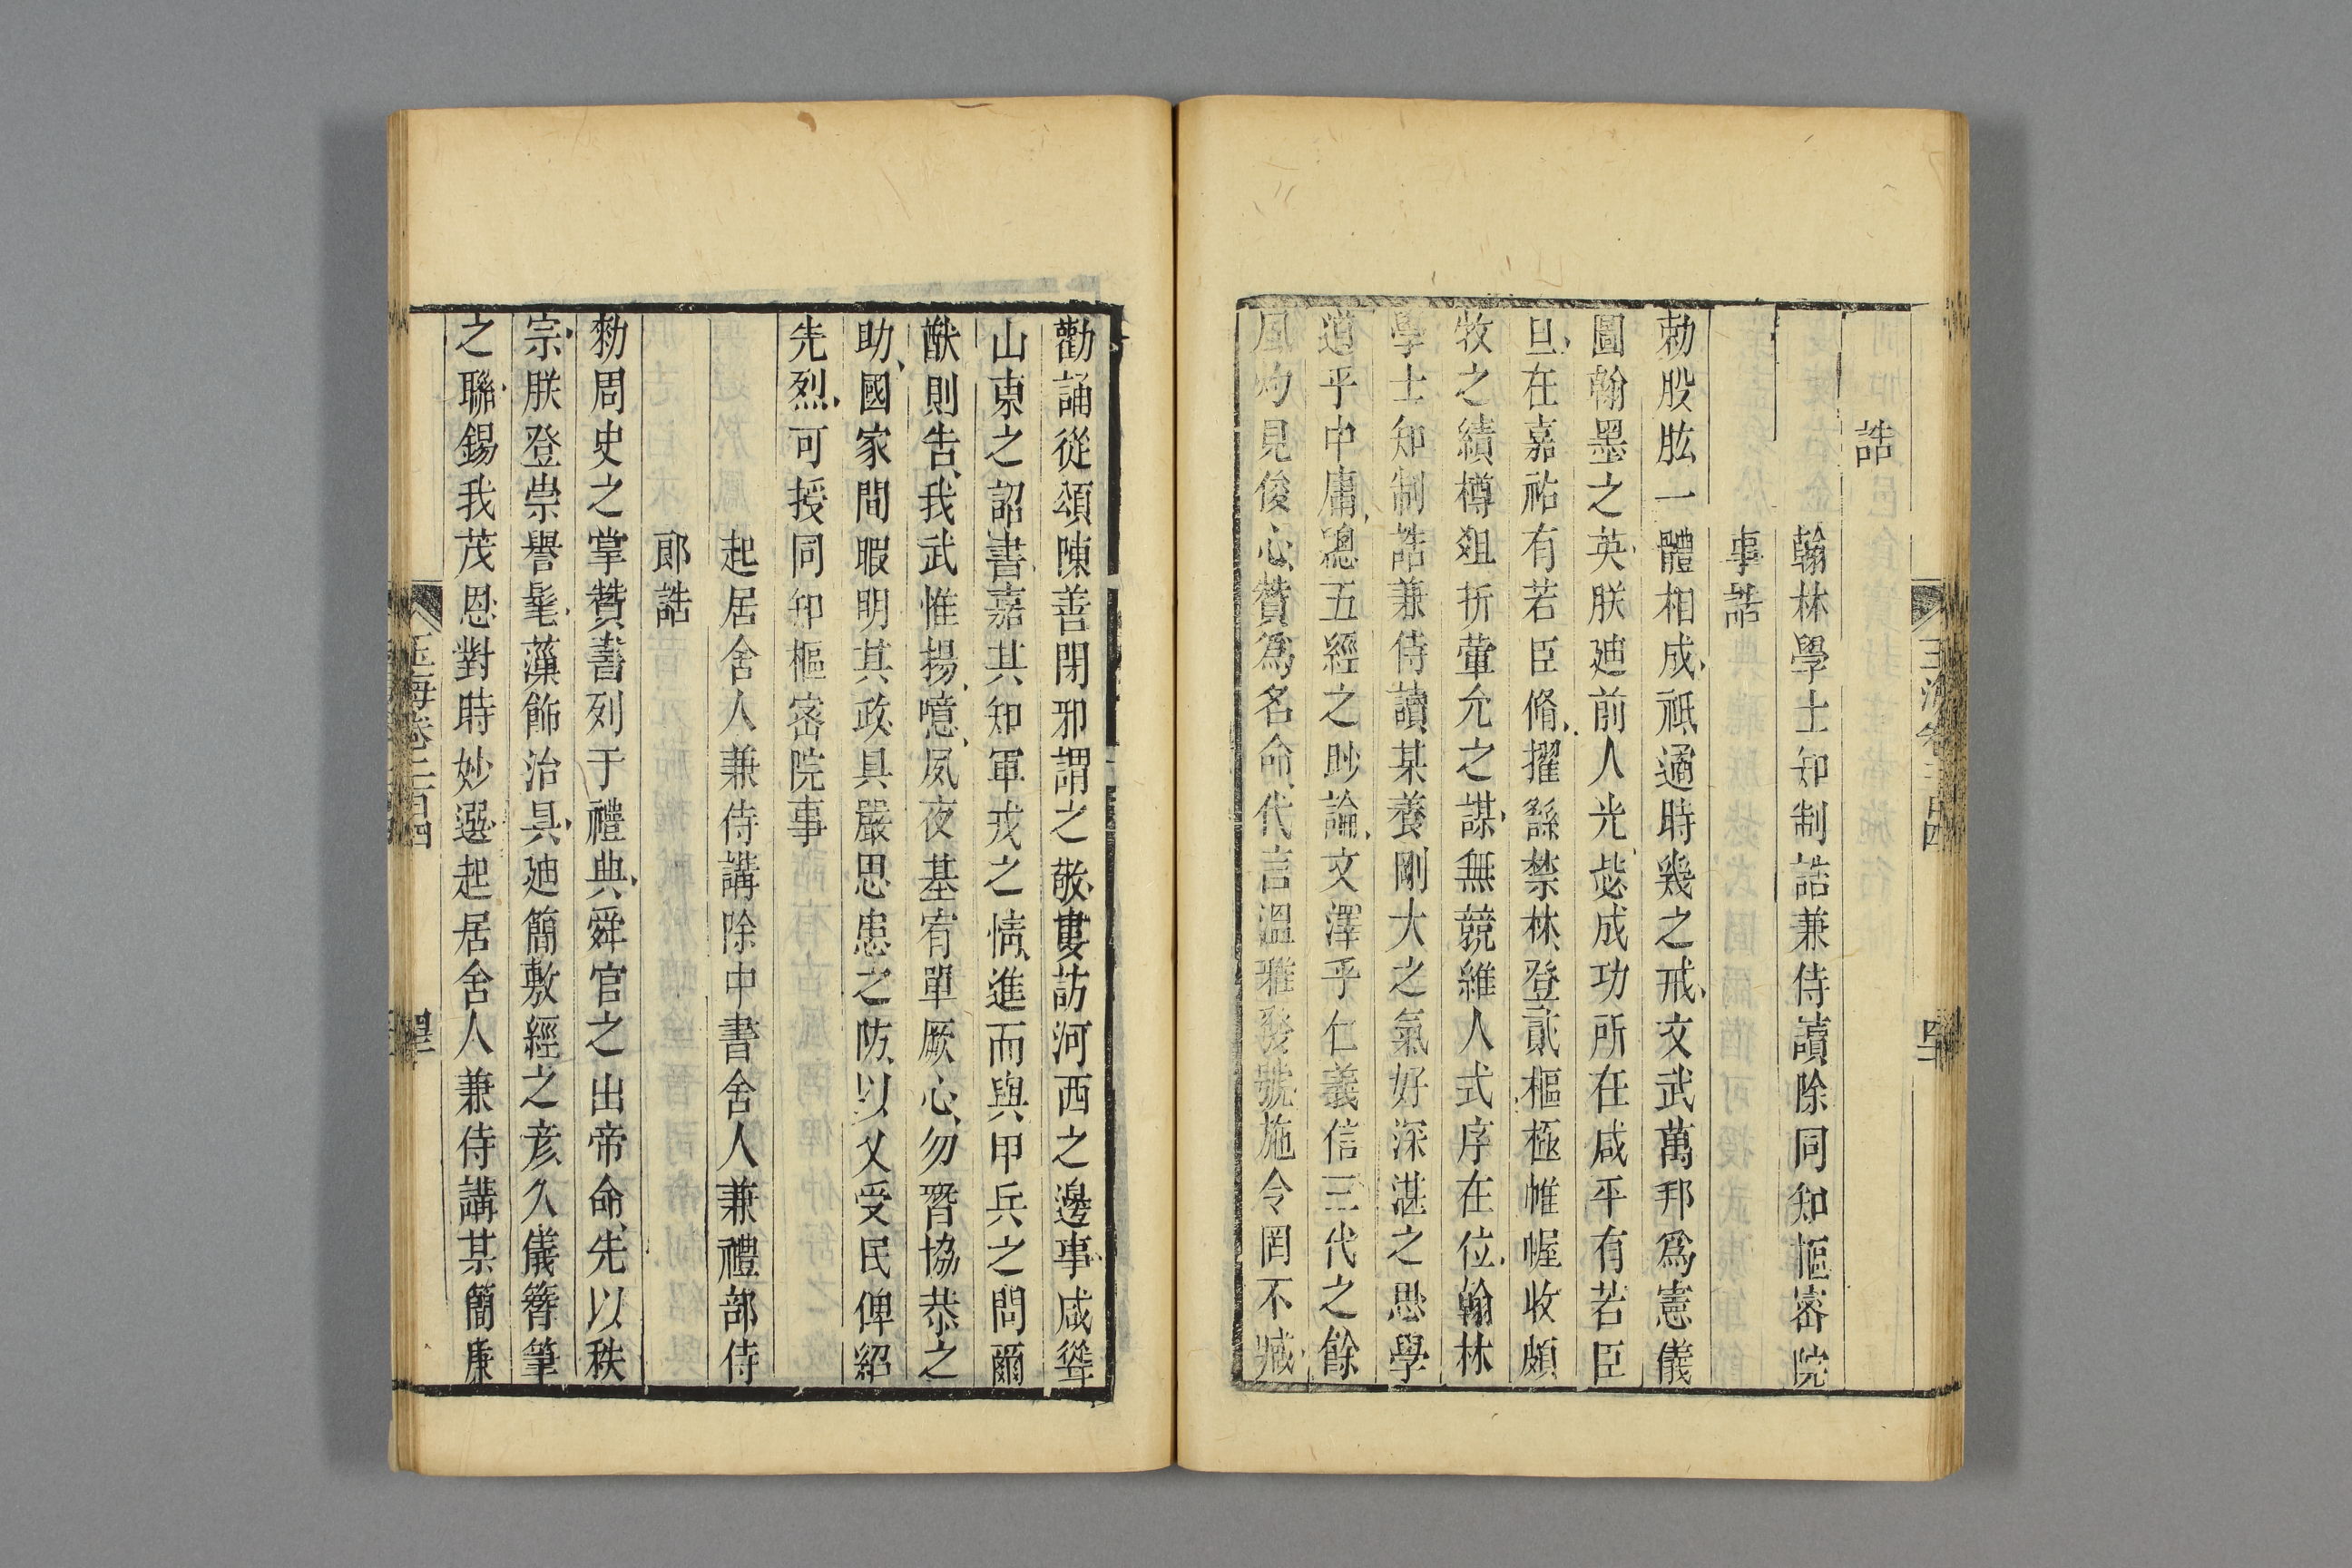 誥
翰林學士知制誥兼侍讀除同知樞密院
事誥
勑股肱一體相成祗遹時幾之戒文武萬邦爲憲儀
圖翰墨之英朕廸前人光毖成功所在咸平有若臣
旦在嘉祐有若臣脩擢繇禁林登貳樞極帷幄收頗
牧之績樽俎折葷允之謀無競維人式序在位翰林
學士知制誥兼侍讀某養剛大之氣好深湛之思學
道乎中庸聰五經之眇論文澤乎仁義信三代之餘
風灼見俊心贊爲名命代言溫雅發號施令罔不臧
勸誦從頌陳善閉邪謂之敬婁訪河西之邊事咸聳
山東之詔書嘉其知軍戎之情進而與甲兵之問爾
猷則告我武惟揚噫夙夜基宥單厥心勿替協恭之
助國家間暇明其政具嚴思患之防以乂受民俾紹
先烈可授同知樞密院事
起居舍人兼侍講除中書舍人兼禮部侍
郎誥
勑周史之掌贊書列于禮典舜官之出帝命先以秩
宗朕登崇譽髦藻飾治具廸簡敷經之彥久儀簪筆
之聯錫我茂恩對時妙選起居舍人兼侍講某簡廉
玉海卷二百四